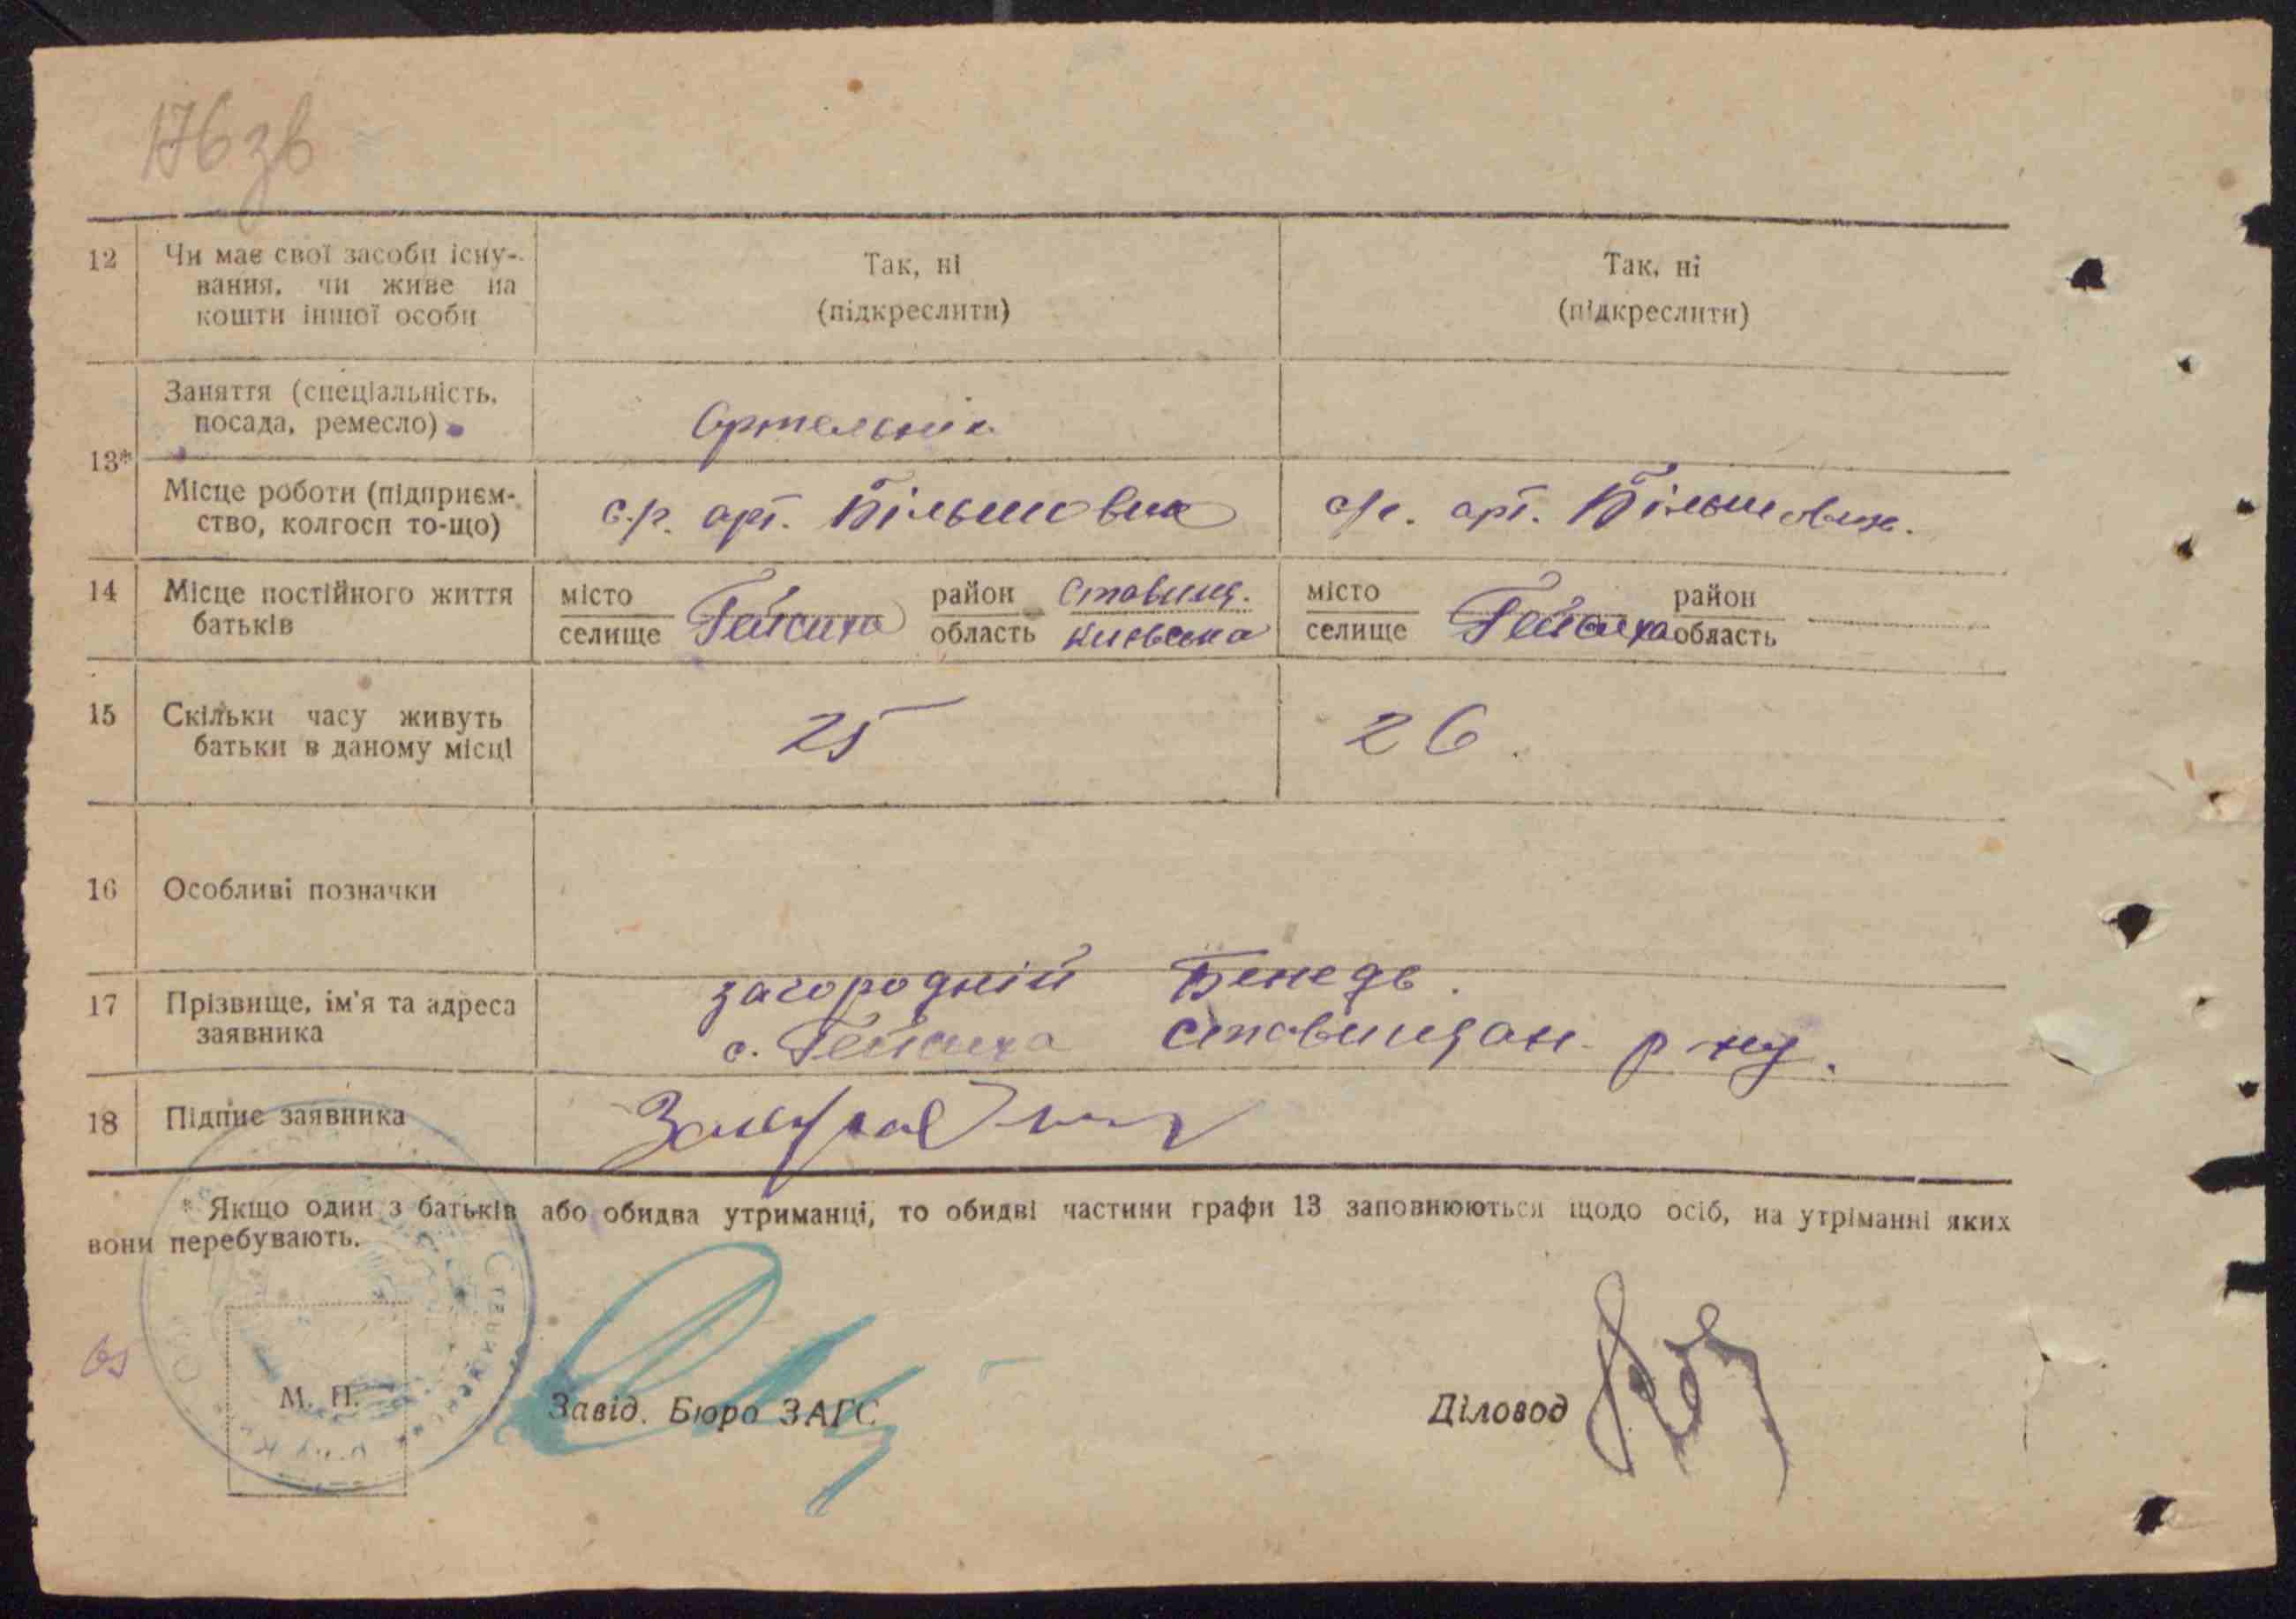 176 зв
12 Чи має свої засоби існу-
вання, чи живе на
кошти іншої особи
Так, ні
(підкреслити)
Так, ні
(підкреслити)
13*
Заняття (спеціальність,
посада, ремесло)
Артельник
Місце роботи (підприєм-
ство, колгосп то-що)
с/г. арт. Більшовик
с/г. арт. Більшовик.
14 Місце постійного життя
батьків
місто
селище
Гейсиха
район
область
Ставищ.
Київська
місто
селище
Гейсиха
район
область
15 Скільки часу живуть
батьки в даному місці
25
26.
16 Особливі позначки
17 Прізвище, ім'я та адреса
заявника
Загородній
с. Гейсиха Ставищан. р-ну.
18 Підпис заявника
* Якщо один з батьків або обидва утриманці, то обидві частини графи 13 заповнюються щодо осіб, на утріманні яких
вони перебувають.
М. П.
Завід. Бюро ЗАГС
Діловод